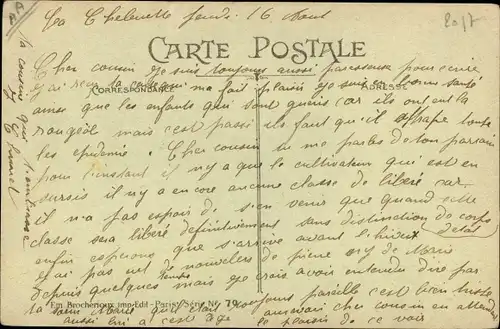 La Chelmette jeudi 16 Aout
2017
CARTE POSTALE
CORRESPONDANCE
ADRESSE
Cher cousin je suis toujours aussi paresseux pour écrire
j'ai reçu ta m'a fait plaisir je suis en bonne santé
ainsi que les enfants qui sont gueris car ils ont eut la
rougeol mais c'est passé ils faut qu'il attrape toute
les epidemie. Cher cousin tu me parles de ton parrain
pour l'instant il n'y a que le cultivateur qui est en
sursis il n'y a encore aucune classe de liberé car
il n'a pas espoir de s'en venir que quand cette
classe sera liberé definitivement sans distinction de corps
enfin esperons que s'arrive avant l'hiver
j'ai pas eut de nouvelles de pierre ny de Marie
depuis quelques temps mais je crois avoir entendu dire par
ta Marie qu'il était toujours pareille c'est bien triste
aussi lui a cet age au revoir cher cousin en attend
le plaisir de ce voir
ta cousine qui t'embrasse
Em. Brocherioux imp-Edit - Paris / Série Nº 79